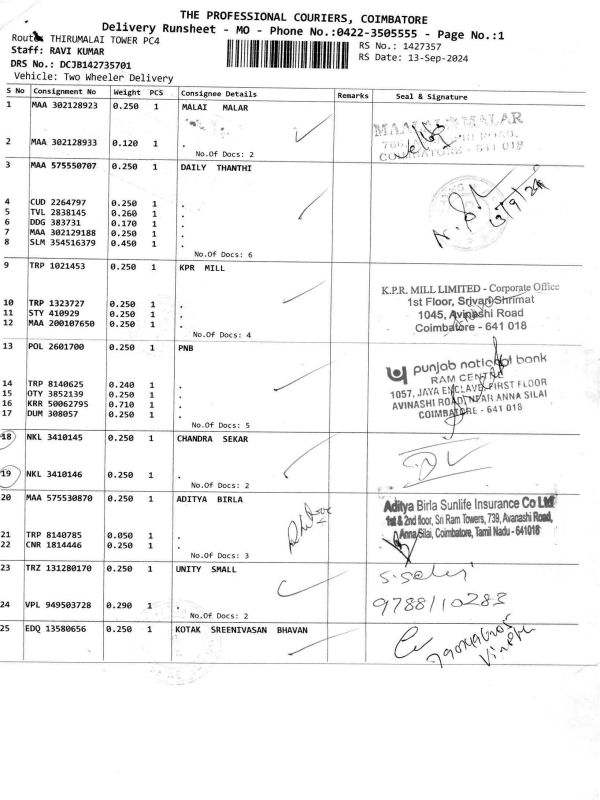 THE PROFESSIONAL COURIERS, COIMBATORE
Delivery Runsheet - MO - Phone No.:0422-3505555 - Page No.:1
Route: THIRUMALAI TOWER PC4
RS No.: 1427357
Staff: RAVI KUMAR
RS Date: 13-Sep-2024
DRS No.: DCJB142735701
Vehicle: Two Wheeler Delivery
S No Consignment No Weight PCS Consignee Details Remarks Seal & Signature
1 MAA 302128923 0.250 1 MALAI MALAR
2 MAA 302128933 0.120 1 .
No.Of Docs: 2
MALAR
COIMBATORE - 641 018
3 MAA 575550707 0.250 1 DAILY THANTHI
4 CUD 2264797 0.250 1 .
5 TVL 2838145 0.260 1 .
6 DDG 383731 0.170 1 .
7 MAA 302129188 0.250 1 .
8 SLM 354516379 0.450 1 .
No.Of Docs: 6
13/9/24
9 TRP 1021453 0.250 1 KPR MILL
10 TRP 1323727 0.250 1 .
11 STY 410929 0.250 1 .
12 MAA 200107650 0.250 1 .
No.Of Docs: 4
K.P.R. MILL LIMITED - Corporate Office
1st Floor, Srivari Shrimat
1045, Avinashi Road
Coimbatore - 641 018
13 POL 2601700 0.250 1 PNB
14 TRP 8140625 0.240 1 .
15 OTY 3852139 0.250 1 .
16 KRR 50062795 0.710 1 .
17 DUM 308057 0.250 1 .
No.Of Docs: 5
punjab national bank
RAM CENTRE
1057, JAYA ENCLAVE, FIRST FLOOR
AVINASHI ROAD, NEAR ANNA SILAI
COIMBATORE - 641 018
18 NKL 3410145 0.250 1 CHANDRA SEKAR
19 NKL 3410146 0.250 1 .
No.Of Docs: 2
20 MAA 575530870 0.250 1 ADITYA BIRLA
21 TRP 8140785 0.050 1 .
22 CNR 1814446 0.250 1 .
No.Of Docs: 3
Aditya Birla Sunlife Insurance Co Ltd
1st & 2nd floor, Sri Ram Towers, 739, Avanashi Road,
Anna Silai, Coimbatore, Tamil Nadu - 641018
23 TRZ 131280170 0.250 1 UNITY SMALL
24 VPL 949503728 0.290 1 .
No.Of Docs: 2
9788110283
25 EDQ 13580656 0.250 1 KOTAK SREENIVASAN BHAVAN